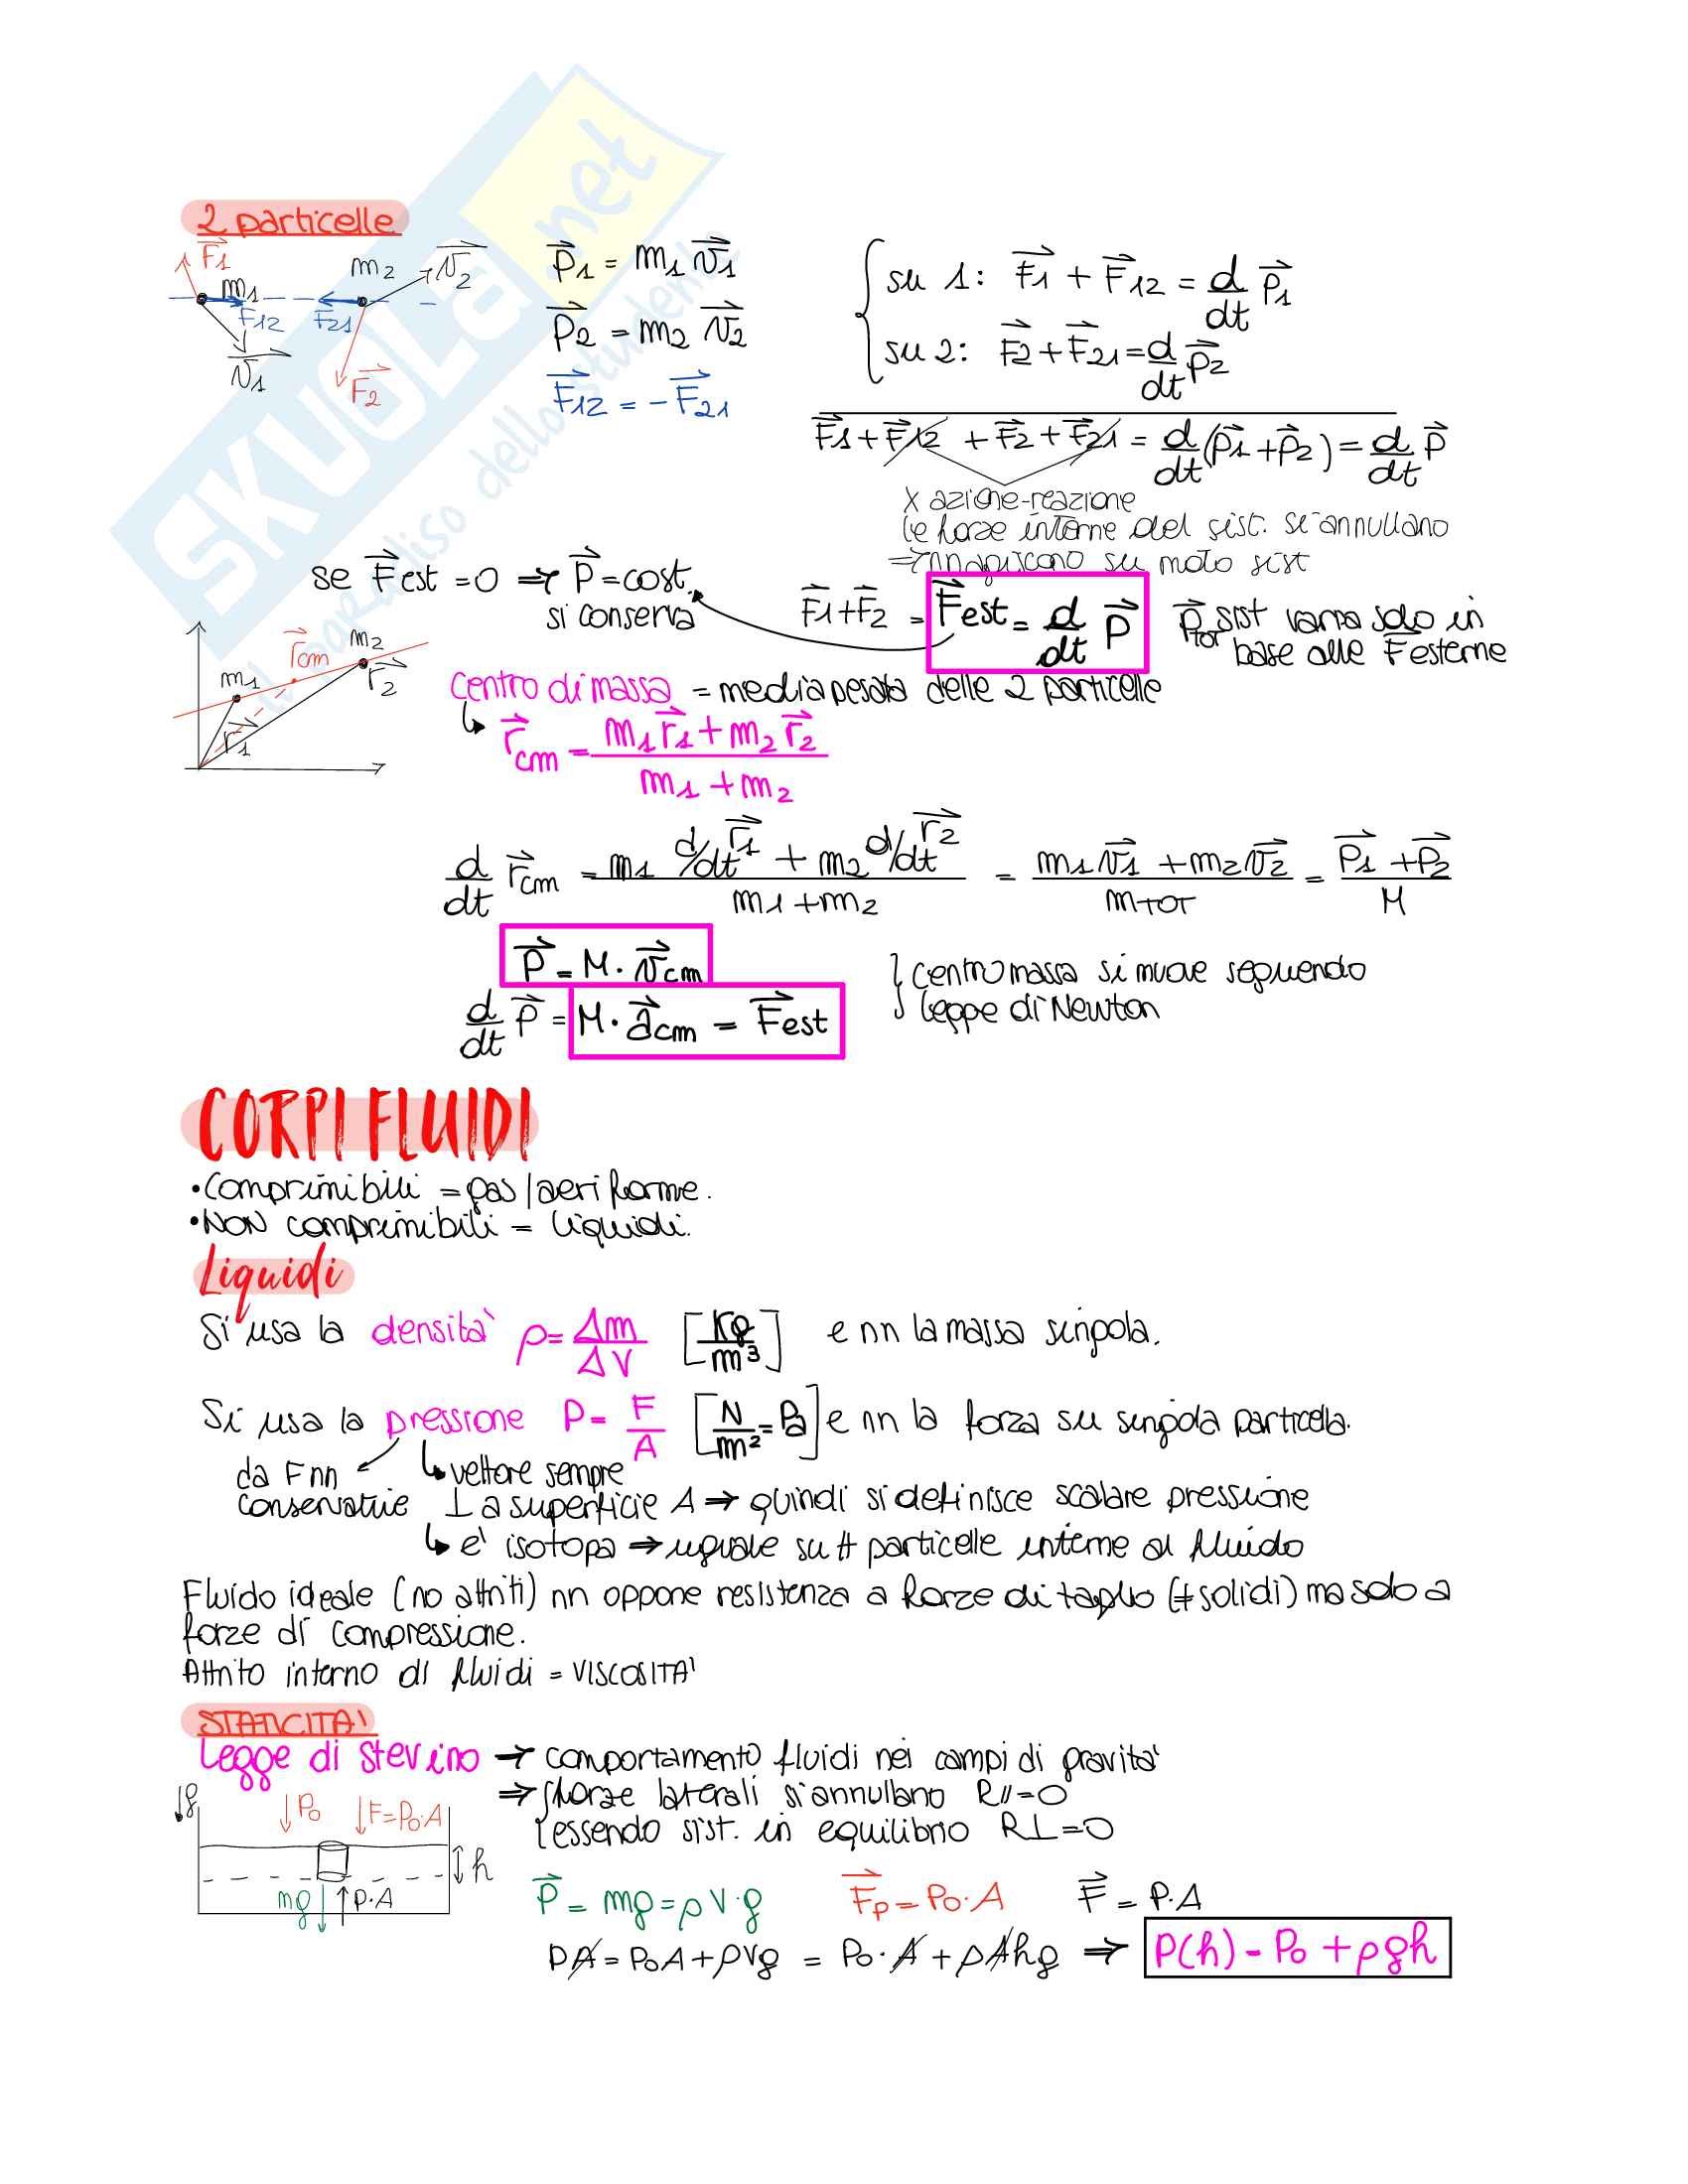 SKUOLA.net
il paradiso dello studente
2 particelle
F⃗1
m1
F12
v⃗1
m2
v⃗2
F21
F⃗2
p⃗1 = m1 v⃗1
p⃗2 = m2 v⃗2
F⃗12 = -F⃗21
su 1: F⃗1 + F⃗12 = d/dt p⃗1
su 2: F⃗2 + F⃗21 = d/dt p⃗2
F⃗1 + F⃗12 + F⃗2 + F⃗21 = d/dt (p⃗1 + p⃗2) = d/dt P⃗
x azione-reazione
le forze interne del sist. si annullano
⇒ nn agiscono su moto sist
se F⃗est = 0 ⇒ P⃗ = cost.
si conserva
F⃗1 + F⃗2 = F⃗est = d/dt P⃗
P⃗tot sist varia solo in
base alle F⃗ esterne
m1
r⃗cm
m2
r⃗1
r⃗2
Centro di massa = media pesata delle 2 particelle
↳ r⃗cm = (m1 r⃗1 + m2 r⃗2) / (m1 + m2)
d/dt r⃗cm = (m1 d/dt r⃗1 + m2 d/dt r⃗2) / (m1 + m2) = (m1 v⃗1 + m2 v⃗2) / mTOT = (P⃗1 + P⃗2) / M
P⃗ = M · v⃗cm
d/dt P⃗ = M · a⃗cm = F⃗est
centro massa si muove seguendo
legge di Newton
CORPI FLUIDI
• Comprimibili = gas/aeriforme.
• NON comprimibili = liquidi.
Liquidi
Si usa la densità ρ = Δm/ΔV [Kg/m³] e nn la massa singola.
Si usa la pressione P = F/A [N/m² = Pa] e nn la forza su singola particella.
da F nn
conservative
↳ vettore sempre
⊥ a superficie A ⇒ quindi si definisce scalare pressione
↳ è isotopa ⇒ uguale su # particelle interne al fluido
Fluido ideale (no attriti) nn oppone resistenza a forze di taglio (≠ solidi) ma solo a
forze di compressione.
Attrito interno di fluidi = VISCOSITA'
STATICITA'
Legge di Stevino → comportamento fluidi nei campi di gravità
⇒ forze laterali si annullano R// = 0
essendo sist. in equilibrio R⊥ = 0
g
P0
F = P0·A
h
mg
P·A
P⃗ = mg = ρV·g
F⃗p = P0·A
F⃗ = P·A
PA = P0A + ρVg = P0·A + ρAhg ⇒ P(h) = P0 + ρgh